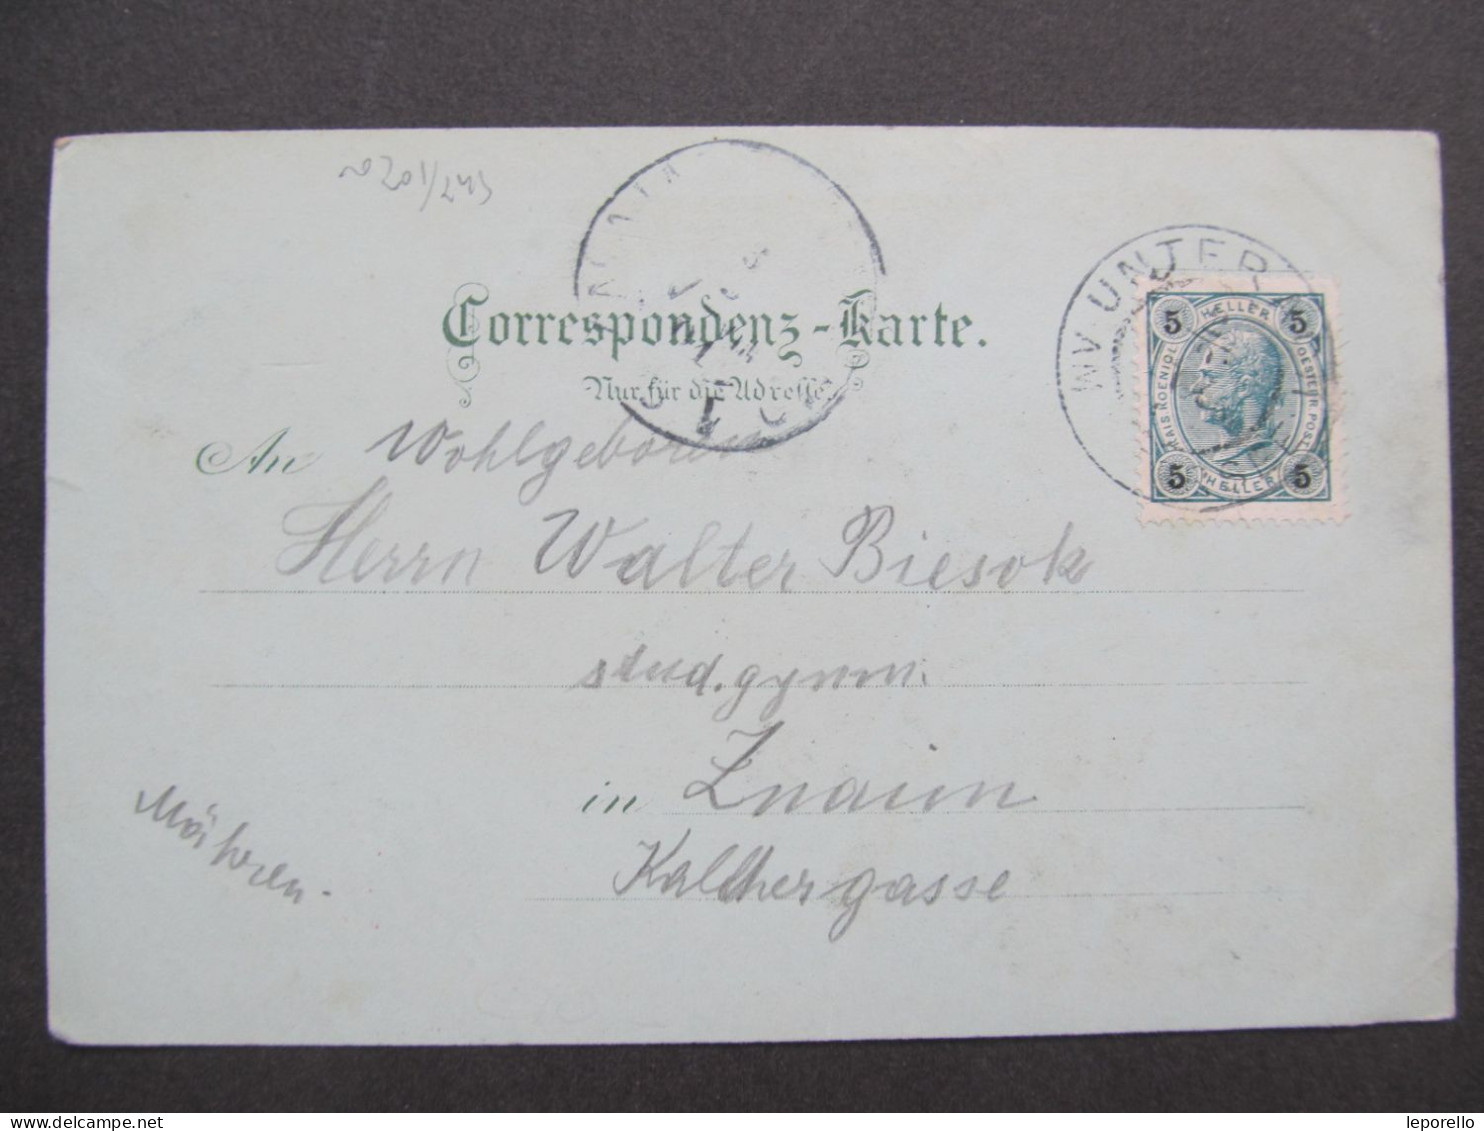 Correspondenz-Karte.
Nur für die Adresse.
An Wohlgeboren
Herrn Walter Biesok
stud. gymn.
in Znaim
Kalchergasse
Mähren.
UNTER
5 HELLER 5
KAIS. KOENIGL. OESTERR. POST
5 HELLER 5
www.delcampe.net
leporello